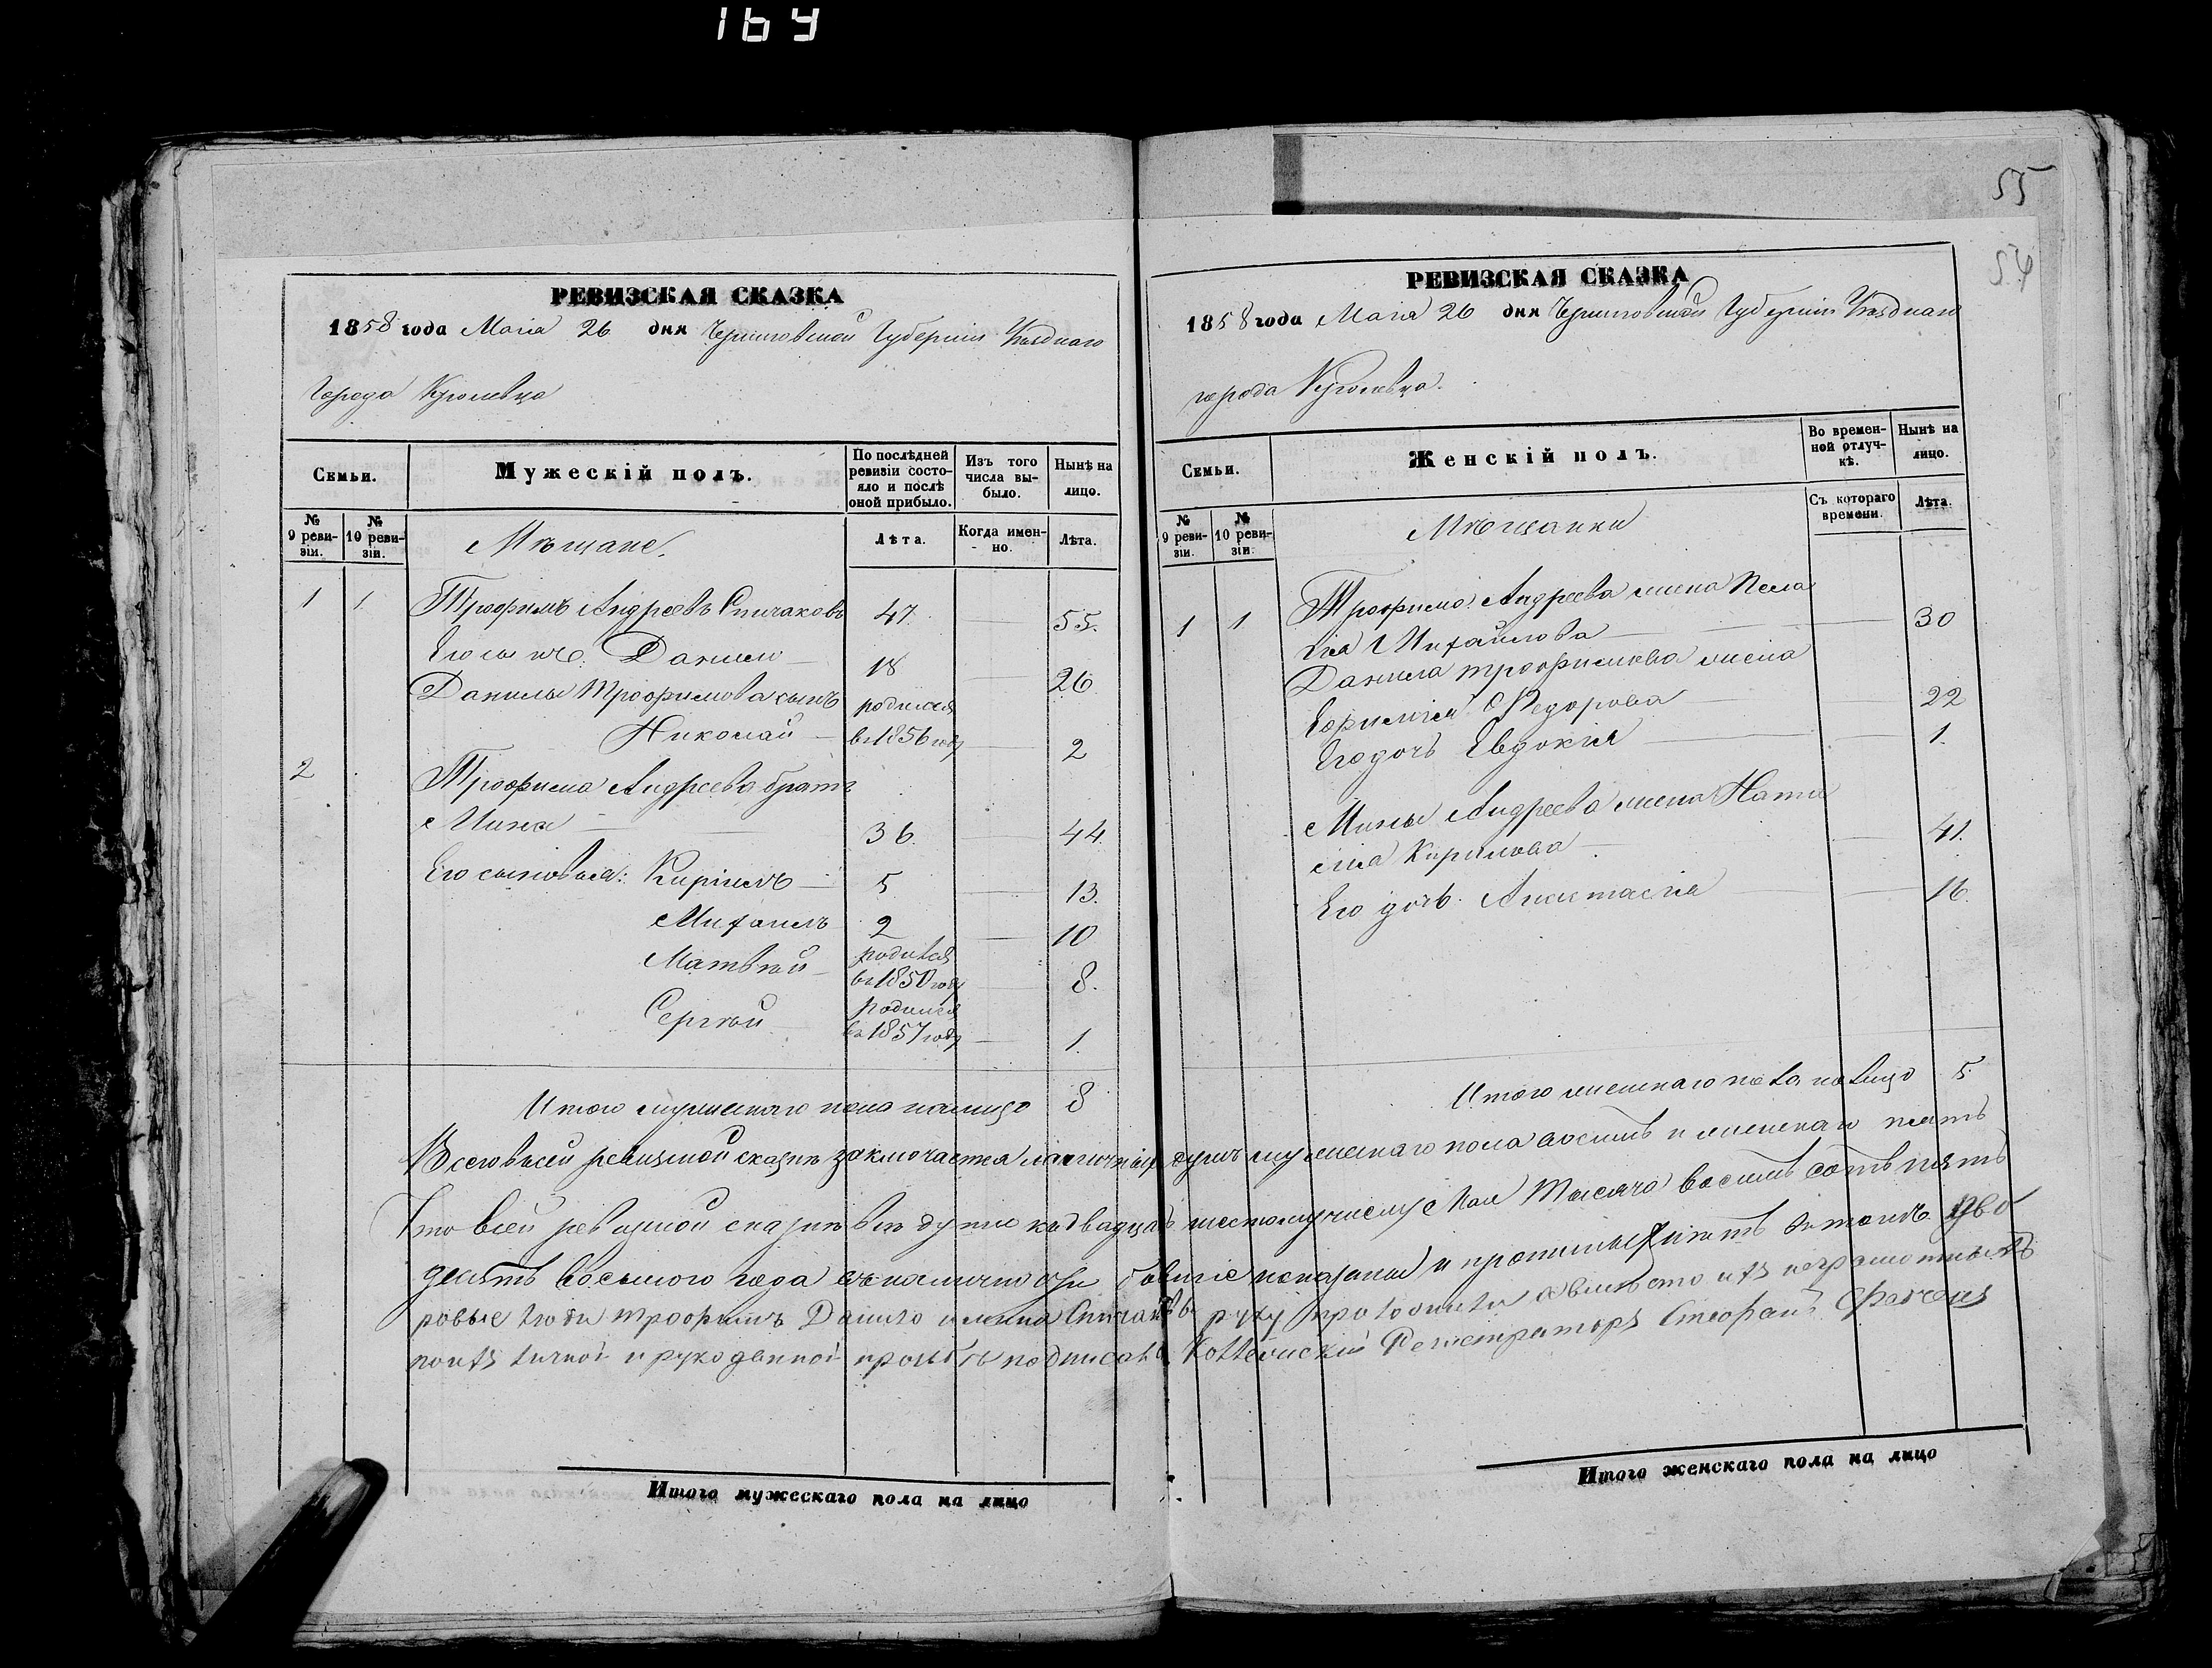 169
55
54
РЕВИЗСКАЯ СКАЗКА
1858 года Маія 26 дня Черниговской Губерніи Уѣзднаго
города Кролевца
Семьи.
Мужескій полъ.
По послѣдней ревизіи состояло и послѣ оной прибыло.
Изъ того числа выбыло.
Нынѣ на лицо.
№ 9 ревизіи.
№ 10 ревизіи.
Мѣщане.
Лѣта.
Когда именно.
Лѣта.
1 1 Трофимъ Андреевъ Спичаковъ 47. 55.
Его сынъ: Данило 18 26
Данилы Трофимова сынъ родился
Николай въ 1856 году 2
2 Трофима Андреева братъ
Мина 36. 44.
Его сыновья: Кирилъ 5 13.
Михаилъ 2 10
Матвѣй родился въ 1850 году 8.
Сергѣй родился въ 1857 году 1.
Итого мужескаго пола налицо 8
РЕВИЗСКАЯ СКАЗКА
1858 года Маія 26 дня Черниговской Губерніи Уѣзднаго
города Кролевца.
Семьи.
Женскій полъ.
Во временной отлучкѣ.
Нынѣ на лицо.
№ 9 ревизіи.
№ 10 ревизіи.
Мѣщанки
Съ котораго времени.
Лѣта.
1 1 Трофима Андреева жена Пела
гія Михайлова 30
Данила Трофимова жена
Ефимія Федорова 22
Его дочь Евдокія 1.
Мины Андреева жена Ната
лія Кирилова 41.
Его дочь Анастасія 16.
Итого женскаго пола налицо 5
Всего в сей ревизской сказкѣ заключается наличныхъ душъ мужескаго пола восемь и женскаго пять
Что в сей ревизкой сказкѣ всѣ души къ двадцать шестому числу Мая тысяча восемь сотъ пять
десятъ восьмого года въ наличности показаны и прописныхъ нѣтъ въ томъ дво
ровые люди Трофимъ Данило и Мина Спичаковы руку приложили а вмѣсто ихъ неграмотныхъ
по ихъ личной и рукоданной прозьбѣ подписалъ Коллежскій Регистраторъ Стефанъ
Итого мужескаго пола на лицо
Итого женскаго пола на лицо